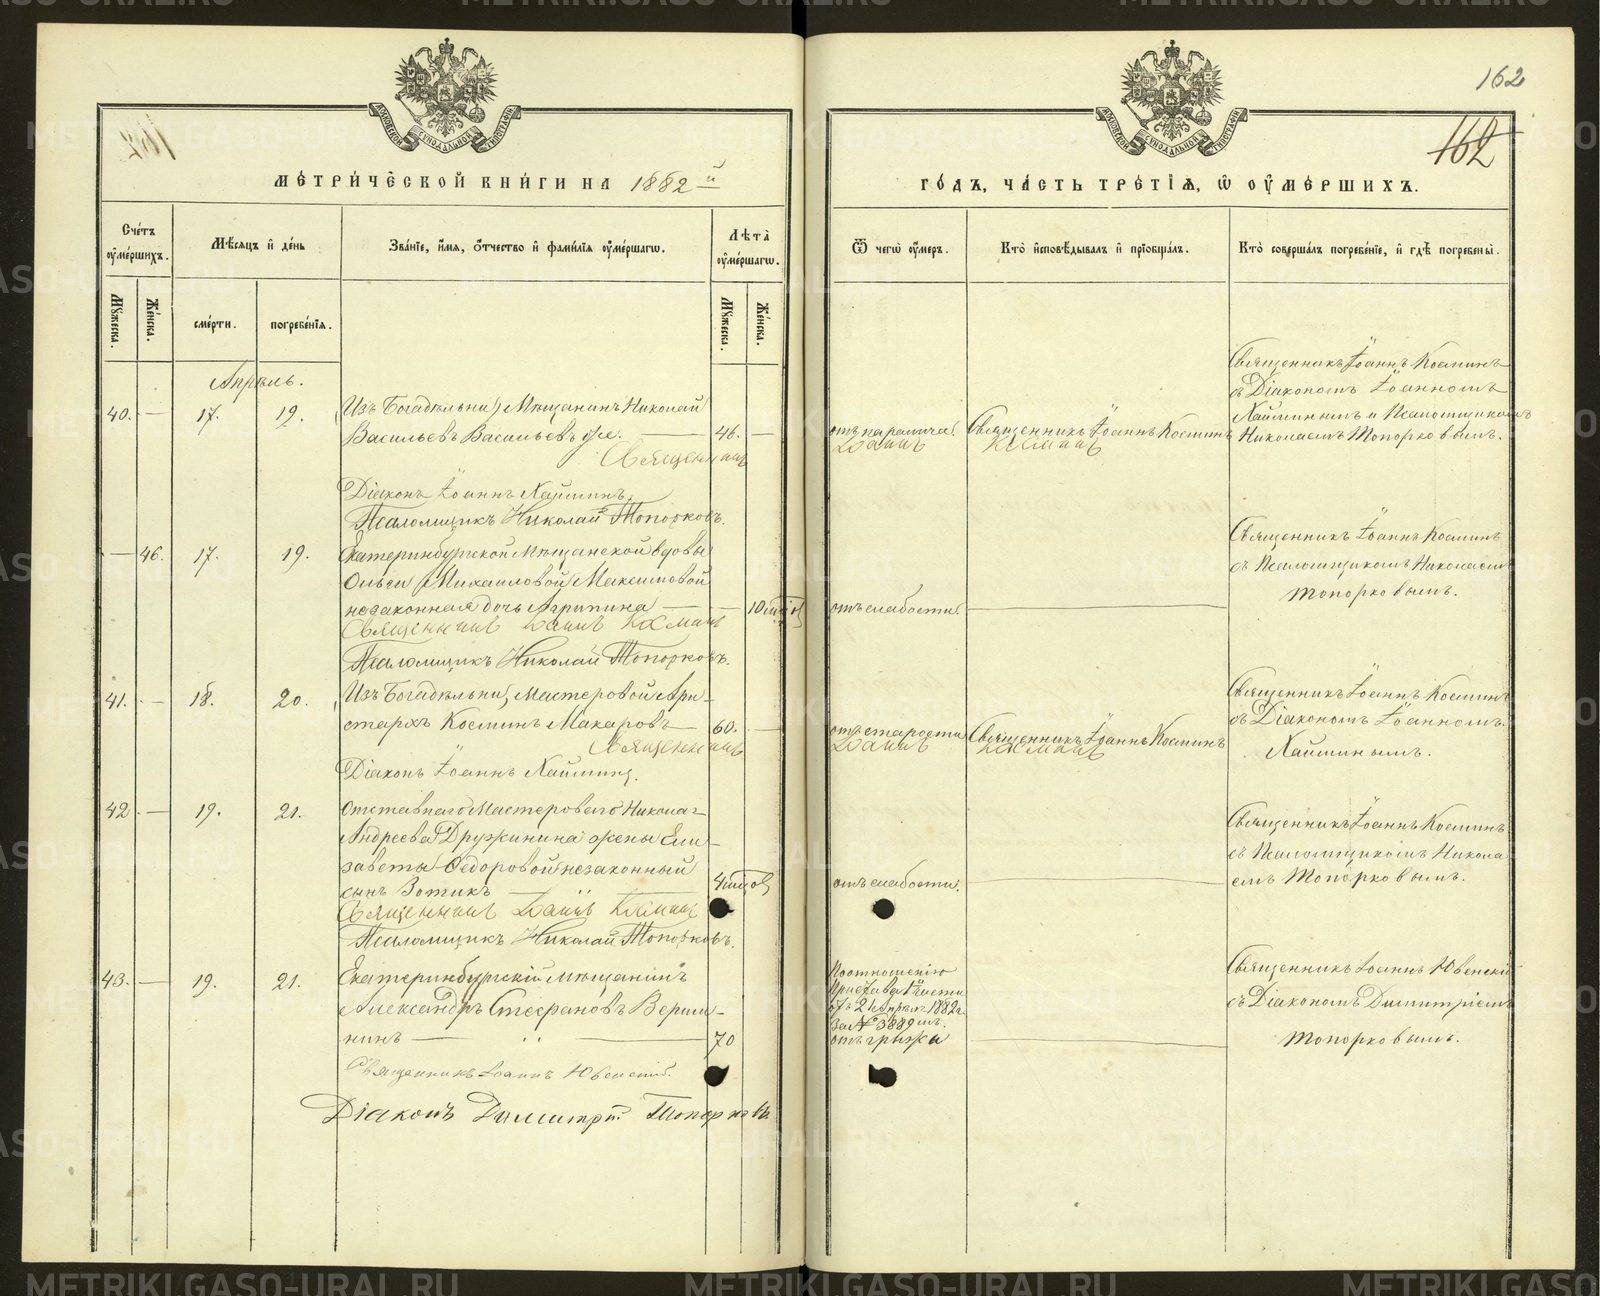 162
162
МЕТРИЧЕСКОЙ КНИГИ НА 1882й
ГОДЪ, ЧАСТЬ ТРЕТІЯ, Ѿ ОУМЕРШИХЪ.
Счетъ оумершихъ.
Мѣсяцъ и день
Званіе, имя, отчество и фамилія оумершагω.
Лѣта оумершагω.
Ѿ чегω оумеръ.
Кто исповѣдывалъ и пріобщалъ.
Кто совершалъ погребеніе, и гдѣ погребены.
Мужеска.
Женска.
смерти.
погребенія.
Мужеска.
Женска.
Апрѣль.
40. — 17. 19.
Изъ Богадѣльни, Мѣщанинъ Николай
Васильевъ Васильевъ же. — 46. —
отъ паралича.
Священникъ Іоаннъ Космин
Священникъ Іоаннъ Косминъ
съ Діакономъ Іоанномъ
Хайминымъ и Псаломщикомъ
Николаемъ Топорковымъ.
Священникъ Іоаннъ Косминъ
Діаконъ Іоаннъ Хайминъ.
Псаломщикъ Николай Топорковъ.
— 46. 17. 19.
Екатеринбургской Мѣщанской вдовы
Ольги Михаиловой Максимовой
незаконная дочь Агрипина — — 10 мцов
отъ слабости.
Священникъ Іоаннъ Косминъ
съ Псаломщикомъ Николаемъ
Топорковымъ.
Священникъ Іоаннъ Косминъ
Псаломщикъ Николай Топорковъ.
41. — 18. 20.
Изъ Богадѣльни, Мастеровой Ари-
стархъ Косминъ Макаровъ — 60. —
отъ старости
Священникъ Іоаннъ Косминъ
Священникъ Іоаннъ Косминъ
съ Діакономъ Іоанномъ
Хайминымъ.
Священникъ Іоаннъ Косминъ
Діаконъ Іоаннъ Хайминъ.
42. — 19. 21.
Отставнаго Мастероваго Никола-
Андреева Дружинина жены Ели-
заветы Ѳедоровой незаконный
сынъ Зотикъ — 4 мцов
отъ слабости.
Священникъ Іоаннъ Косминъ
съ Псаломщикомъ Никола
емъ Топорковымъ.
Священникъ Іоаннъ Косминъ
Псаломщикъ Николай Топорковъ.
43. — 19. 21.
Екатеринбургскій мѣщанинъ
Александръ Стефановъ Верши-
нинъ — 70
По отношенію
Пристава 1й части
отъ 21 Апрѣл. 1882 г.
за № 3889 мъ.
отъ грыжи
Священникъ Іоаннъ Ювенскій
съ Діакономъ Димитріемъ
Топорковымъ.
Священникъ Іоаннъ Ювенскій.
Діаконъ Димитрій Топорковъ.
METRIKI.GASO-URAL.RU